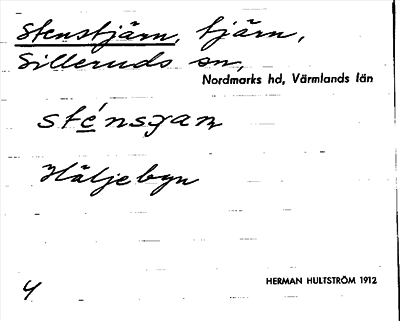 Stenstjärn, tjärn,
Silleruds sn,
Nordmarks hd, Värmlands län
sténsɣan
Häljebyn
4
HERMAN HULTSTRÖM 1912